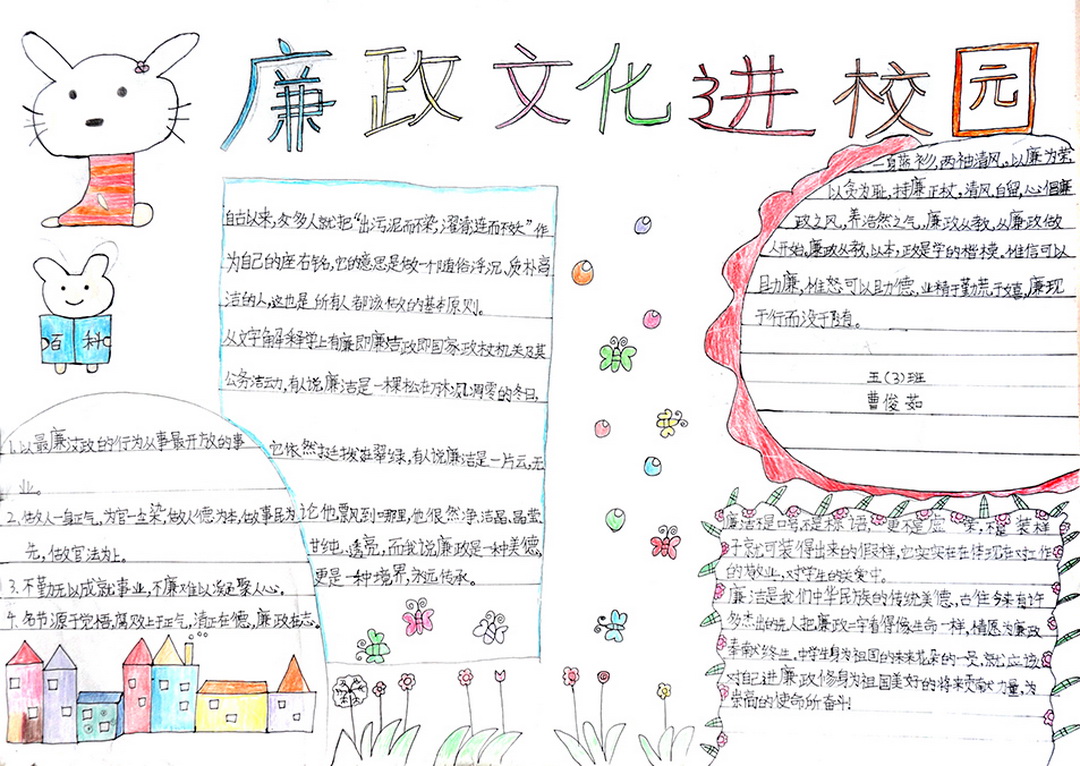 廉政文化进校园
百科
自古以来,女多人就把“出污泥而不染,濯清涟而不妖”作
为自己的座右铭,它的意思是做一个随俗浮沉、质朴高
洁的人,这也是所有人都该做的基本原则。
从文字解释学上有廉即廉洁政即国家政权机关及其
公务活动,有人说廉洁是一棵松在万木凋零的冬日,
它依然挺拔在翠绿,有人说廉洁是一片云,无
论他飘到哪里,他依然净洁晶莹
甘纯、透亮,而我说廉政是一种美德,
更是一种境界,永远传承。
1.以最廉洁政的行为从事最开放的事
业。
2.做人一身正气,为官一尘染,做人德为本,做事民为
先,做官法为上。
3.不勤无以成就事业,不廉难以凝聚人心。
4.名节源于觉悟,腐败止于正气,清正在德,廉政在志。
一身蓝衫,两袖清风。以廉为荣,
以贪为耻,持廉正杖,清风自留,心倡廉
政之风,养浩然之气,廉政从教,从廉政做
人开始,廉政从教,以本,政是学的楷模,惟信可以
助廉,惟恕可以助德,业精于勤荒于嬉,廉现
于行而没于随。
五(3)班
曹俊茹
廉洁不是口号,不是标语,更不是虚 荣,不是 装样
子就可装得出来的假样,它实实在在体现在对工作
的敬业,对学生的关爱中。
廉洁是我们中华民族的传统美德,古往今来有许
多杰出的先人把廉政二字看得像生命一样,情愿为廉政
奉献终生,中学生身为祖国的未来花朵的一员,就应该
对自己进廉政修身为祖国美好的将来贡献力量,为
崇高的使命所奋斗!